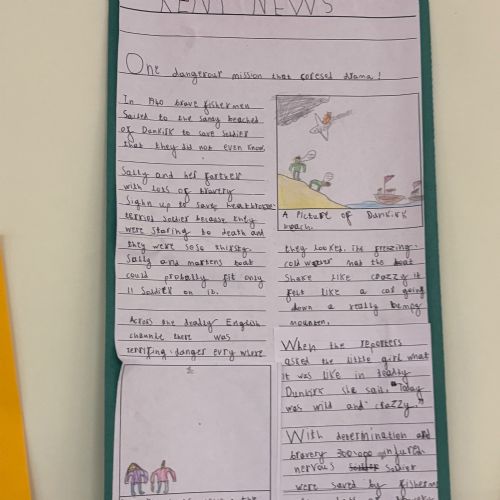 KENT NEWS
One dangerour mission that coresed drama!
In 1940 brave fishermen
Sailed to the sandy beached
of Dunkirk to save soldier
that they did not even know.
Sally and her farther
with lots of bravery
Sighn up to save heartbroke
terrifid soldier because they
were staring to death and
they were soso thirsty.
Sally and martens boat
could probably fit only
11 Soldier on it.
Across the deadly English
channle there was
terrifing danger evry where
A Picture of Dunkirk
beach.
they looked. The freezing
cold water mad the boat
Shake like crazzy it
felt like a car going
down a really bumpy
mounten.
When the reporters
asked the little girl what
it was like in deadly
Dunkirk she said, "Today
was wild and crazzy."
With determination and
bravery 300,000 injured
nervous soldier
were saved by fisherm